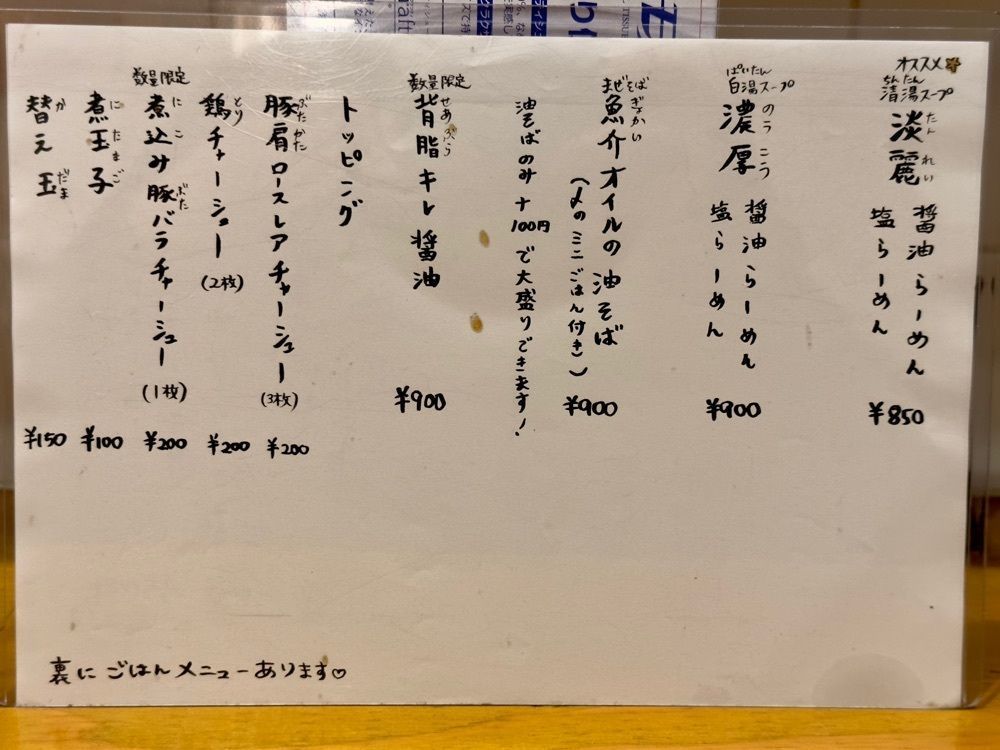 オススメ
ちんたん
清湯スープ
淡麗
たんれい
醤油らーめん
塩らーめん
¥850
ぱいたん
白湯スープ
濃厚
のうこう
醤油らーめん
塩らーめん
¥900
まぜそば
魚介オイルの油そば
ぎょかい
(〆のミニごはん付き)
¥900
油そばのみ+100円で大盛りできます!
数量限定
背脂キレ醤油
せあぶら
¥900
トッピング
豚肩ロースレアチャーシュー
ぶたかた
(3枚)
¥200
鶏チャーシュー
とり
(2枚)
¥200
数量限定
煮込み豚バラチャーシュー
にこ
ぶた
(1枚)
¥200
煮玉子
にたまご
¥100
替え玉
か
だま
¥150
裏にごはんメニューあります♡